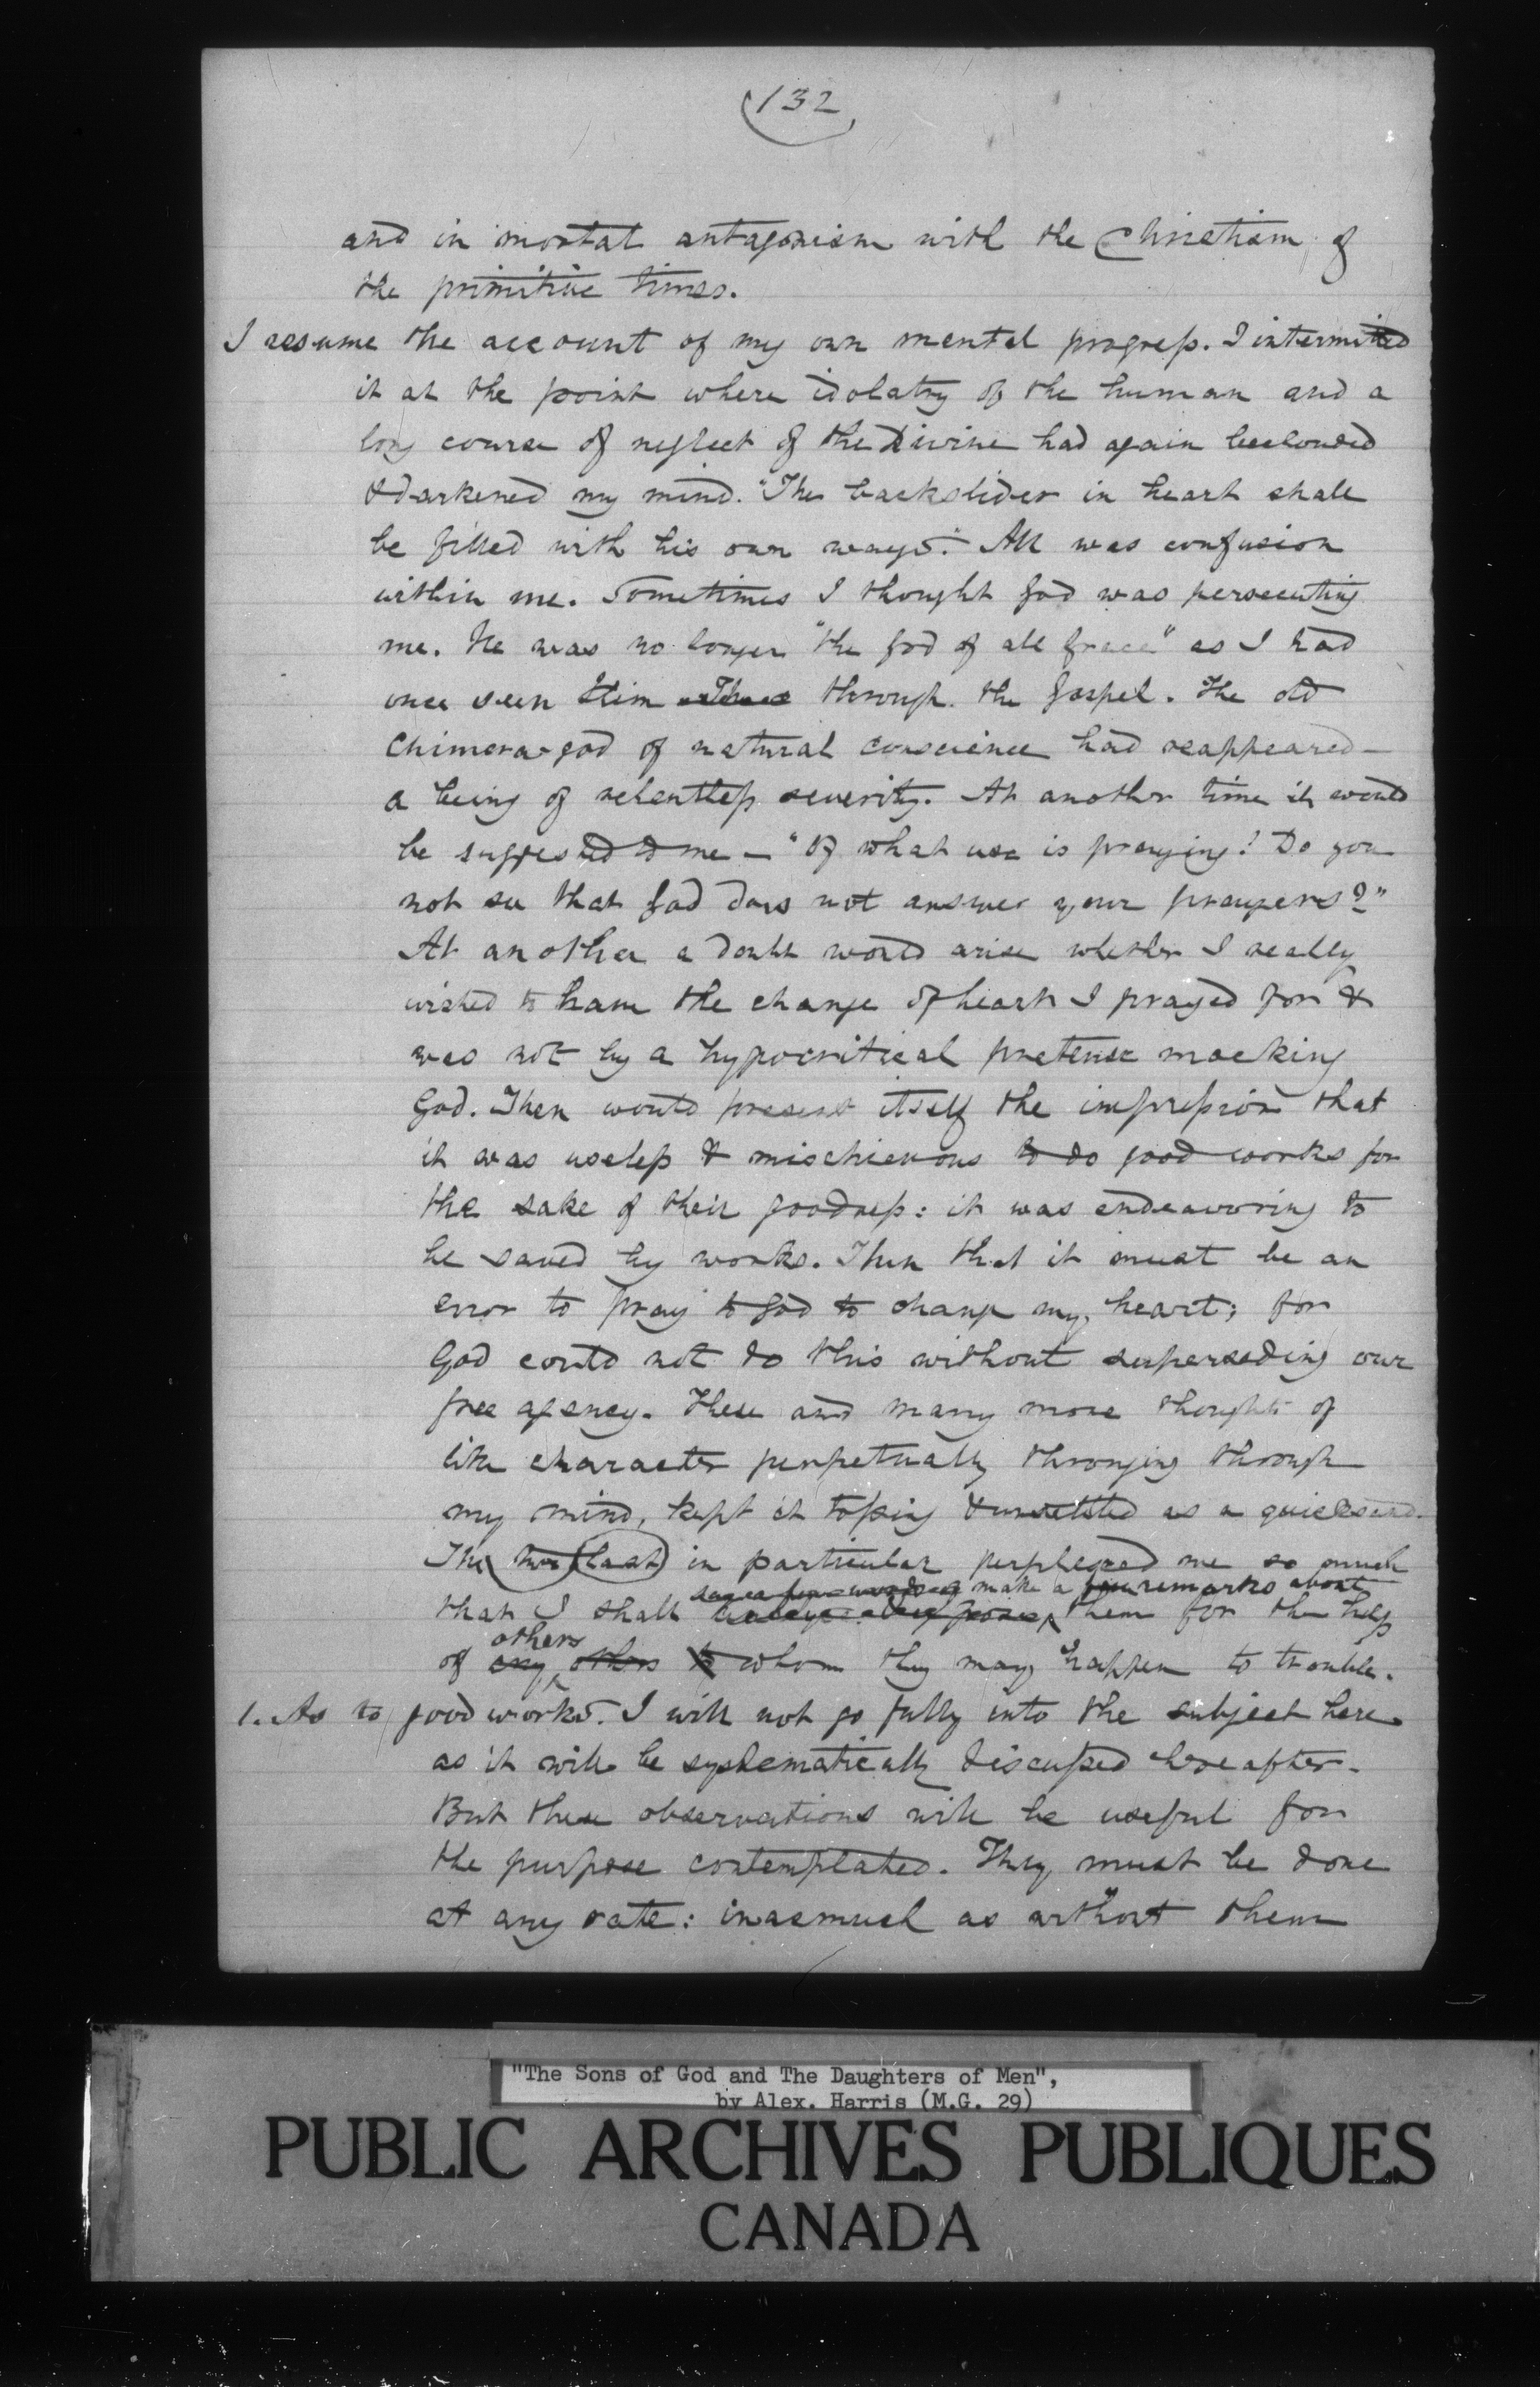 (132)
and in mortal antagonism with the Christism of
the primitive times.
I resume the account of my own mental progress. I intermitted
it at the point where idolatry of the human and a
long course of neglect of the Divine had again beclouded
& darkened my mind. "The backslider in heart shall
be filled with his own ways." All was confusion
within me. Sometimes I thought God was persecuting
me. He was no longer "the God of all grace" as I had
once seen Him through the Gospel. The old
Chimera-god of natural conscience had reappeared—
a being of relentless severity. At another time it would
be suggested to me — "Of what use is praying! Do you
not see that God does not answer your prayers?"
At another a doubt would arise whether I really
wished to have the change of heart I prayed for &
was not by a hypocritical pretense mocking
God. Then would present itself the impression that
it was useless & mischievous to do good works for
the sake of their goodness: it was endeavoring to
be saved by works. Then that it must be an
error to pray to God to change my heart; for
God could not do this without superseding our
free agency. These and many more thoughts of
like character perpetually thronging through
my mind, kept it tossing & unsettled as a quicksand.
The two last in particular perplexed me so much
say a few words make a few remarks about
that I shall them for the help
others
of any others to whom they may happen to trouble.
1. As to good works. I will not go fully into the subject here
as it will be systematically discussed hereafter.
But these observations will be useful for
the purpose contemplated. They must be done
at any rate: inasmuch as without them
"The Sons of God and The Daughters of Men",
by Alex. Harris (M.G. 29)
PUBLIC ARCHIVES PUBLIQUES
CANADA